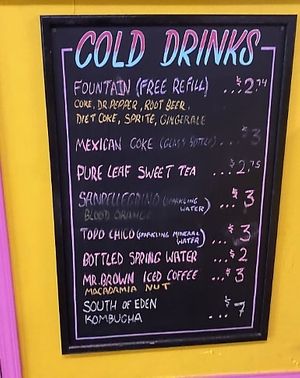 COLD DRINKS
FOUNTAIN (FREE REFILL) ...$2.74
COKE, DR. PEPPER, ROOT BEER,
DIET COKE, SPRITE, GINGERALE
MEXICAN COKE (GLASS BOTTLE) ...$3
PURE LEAF SWEET TEA ...$2.75
(SPARKLING WATER) ...$3
BLOOD ORANGE
TOPO CHICO (SPARKLING MINERAL WATER) ...$3
BOTTLED SPRING WATER ...$2
MR. BROWN ICED COFFEE ...$3
MACADAMIA NUT
SOUTH OF EDEN
KOMBUCHA ...$7